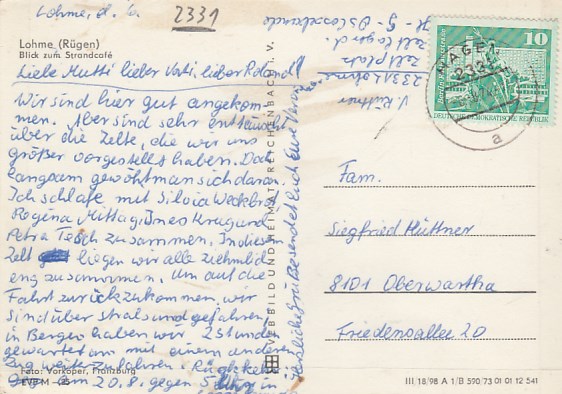 Lohme, d. 6.
2331
Lohme (Rügen)
Blick zum Strandcafé
Liebe Mutti lieber Vati, lieber Roland!
Wir sind hier gut angekom-
men. Aber sind sehr enttäuscht
über die Zelte, die wir uns
größer vorgestellt haben. Doch
langsam gewöhnt man sich daran
Ich schlafe mit Silvia
Regina Mittag, Ines Krug und
Petra Tesch zusammen. In diesem
Zelt liegen wir alle ziehmlich
eng zusammen. Um auf die
Fahrt zurückzukommen, wir
sind über Stralsund gefahren,
in Bergen haben wir 2 Stunden
gewartet um mit einem anderen
Zug weiterzufahren. Rückkehr
am 20.8. gegen 5 Uhr in
Herzliche Grüße sendet Euch Eure
V. Hüttner
2331 Lohme
Zeltplatz
Zeltlager d.
VEB BILD UND HEIMAT REICHENBACH I. V.
10
DEUTSCHE DEMOKRATISCHE REPUBLIK
SAGARD
2335
a
Fam.
Siegfried Hüttner
8101 Oberwartha
Friedensallee 20
Foto: Vorkoper, Franzburg
III/18/98 A 1/B 590/73 01 01 12 541